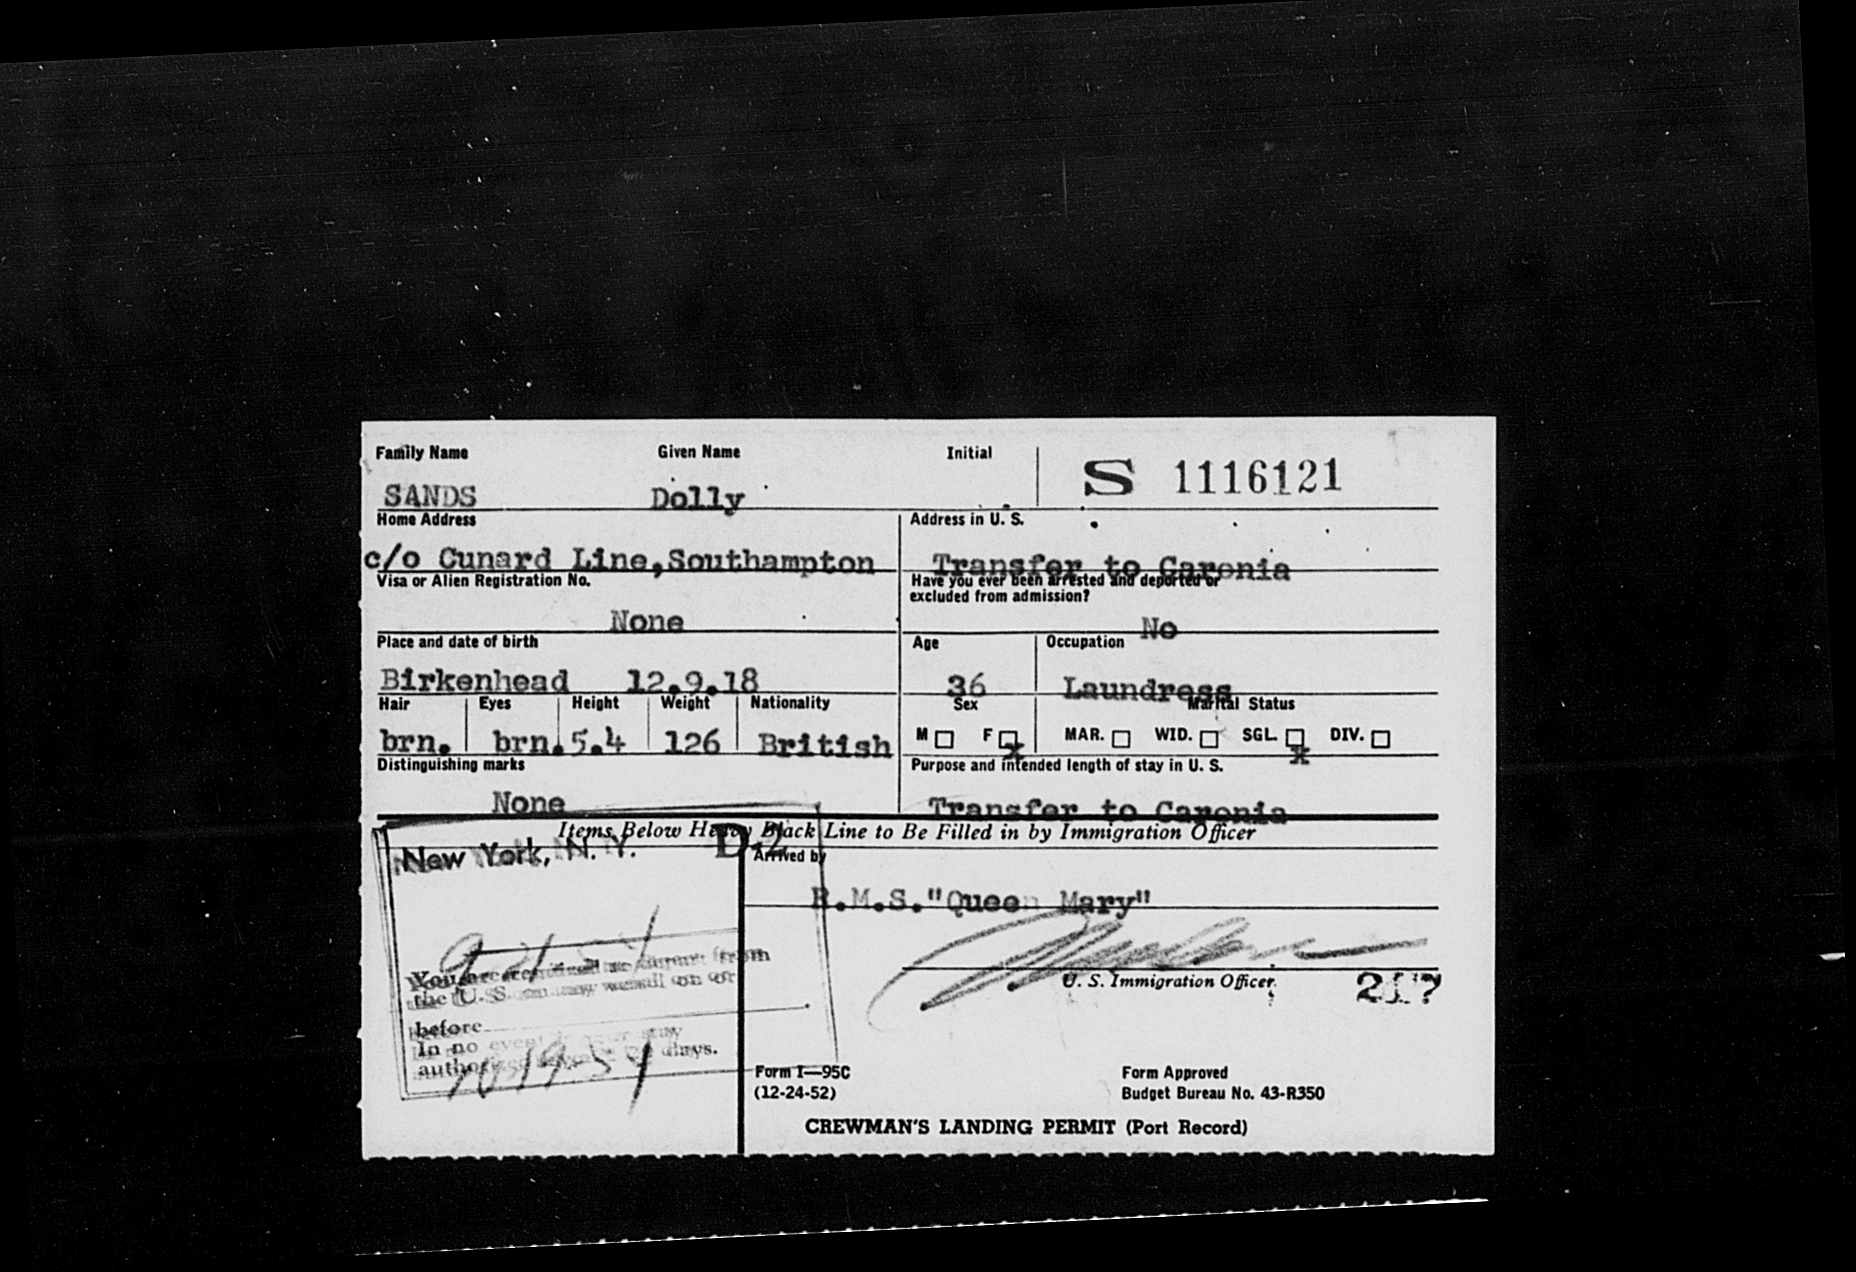 Family Name Given Name Initial
SANDS Dolly S 1116121
Home Address Address in U. S.
c/o Cunard Line,Southampton Transfer to Caronia
Visa or Alien Registration No. Have you ever been arrested and deported or
excluded from admission?
None No
Place and date of birth Age Occupation
Birkenhead 12.9.18 36 Laundress
Hair Eyes Height Weight Nationality Sex Marital Status
brn. brn. 5.4 126 British M F x MAR. WID. SGL. x DIV.
Distinguishing marks Purpose and intended length of stay in U. S.
None Transfer to Caronia
Items Below Heavy Black Line to Be Filled in by Immigration Officer
New York, N. Y. D-2 Arrived by
R.M.S."Queen Mary"
You are from
the U. S. on or
U. S. Immigration Officer 217
before
In no event stay
days.
10-19-54
Form I—95C Form Approved
(12-24-52) Budget Bureau No. 43-R350
CREWMAN'S LANDING PERMIT (Port Record)